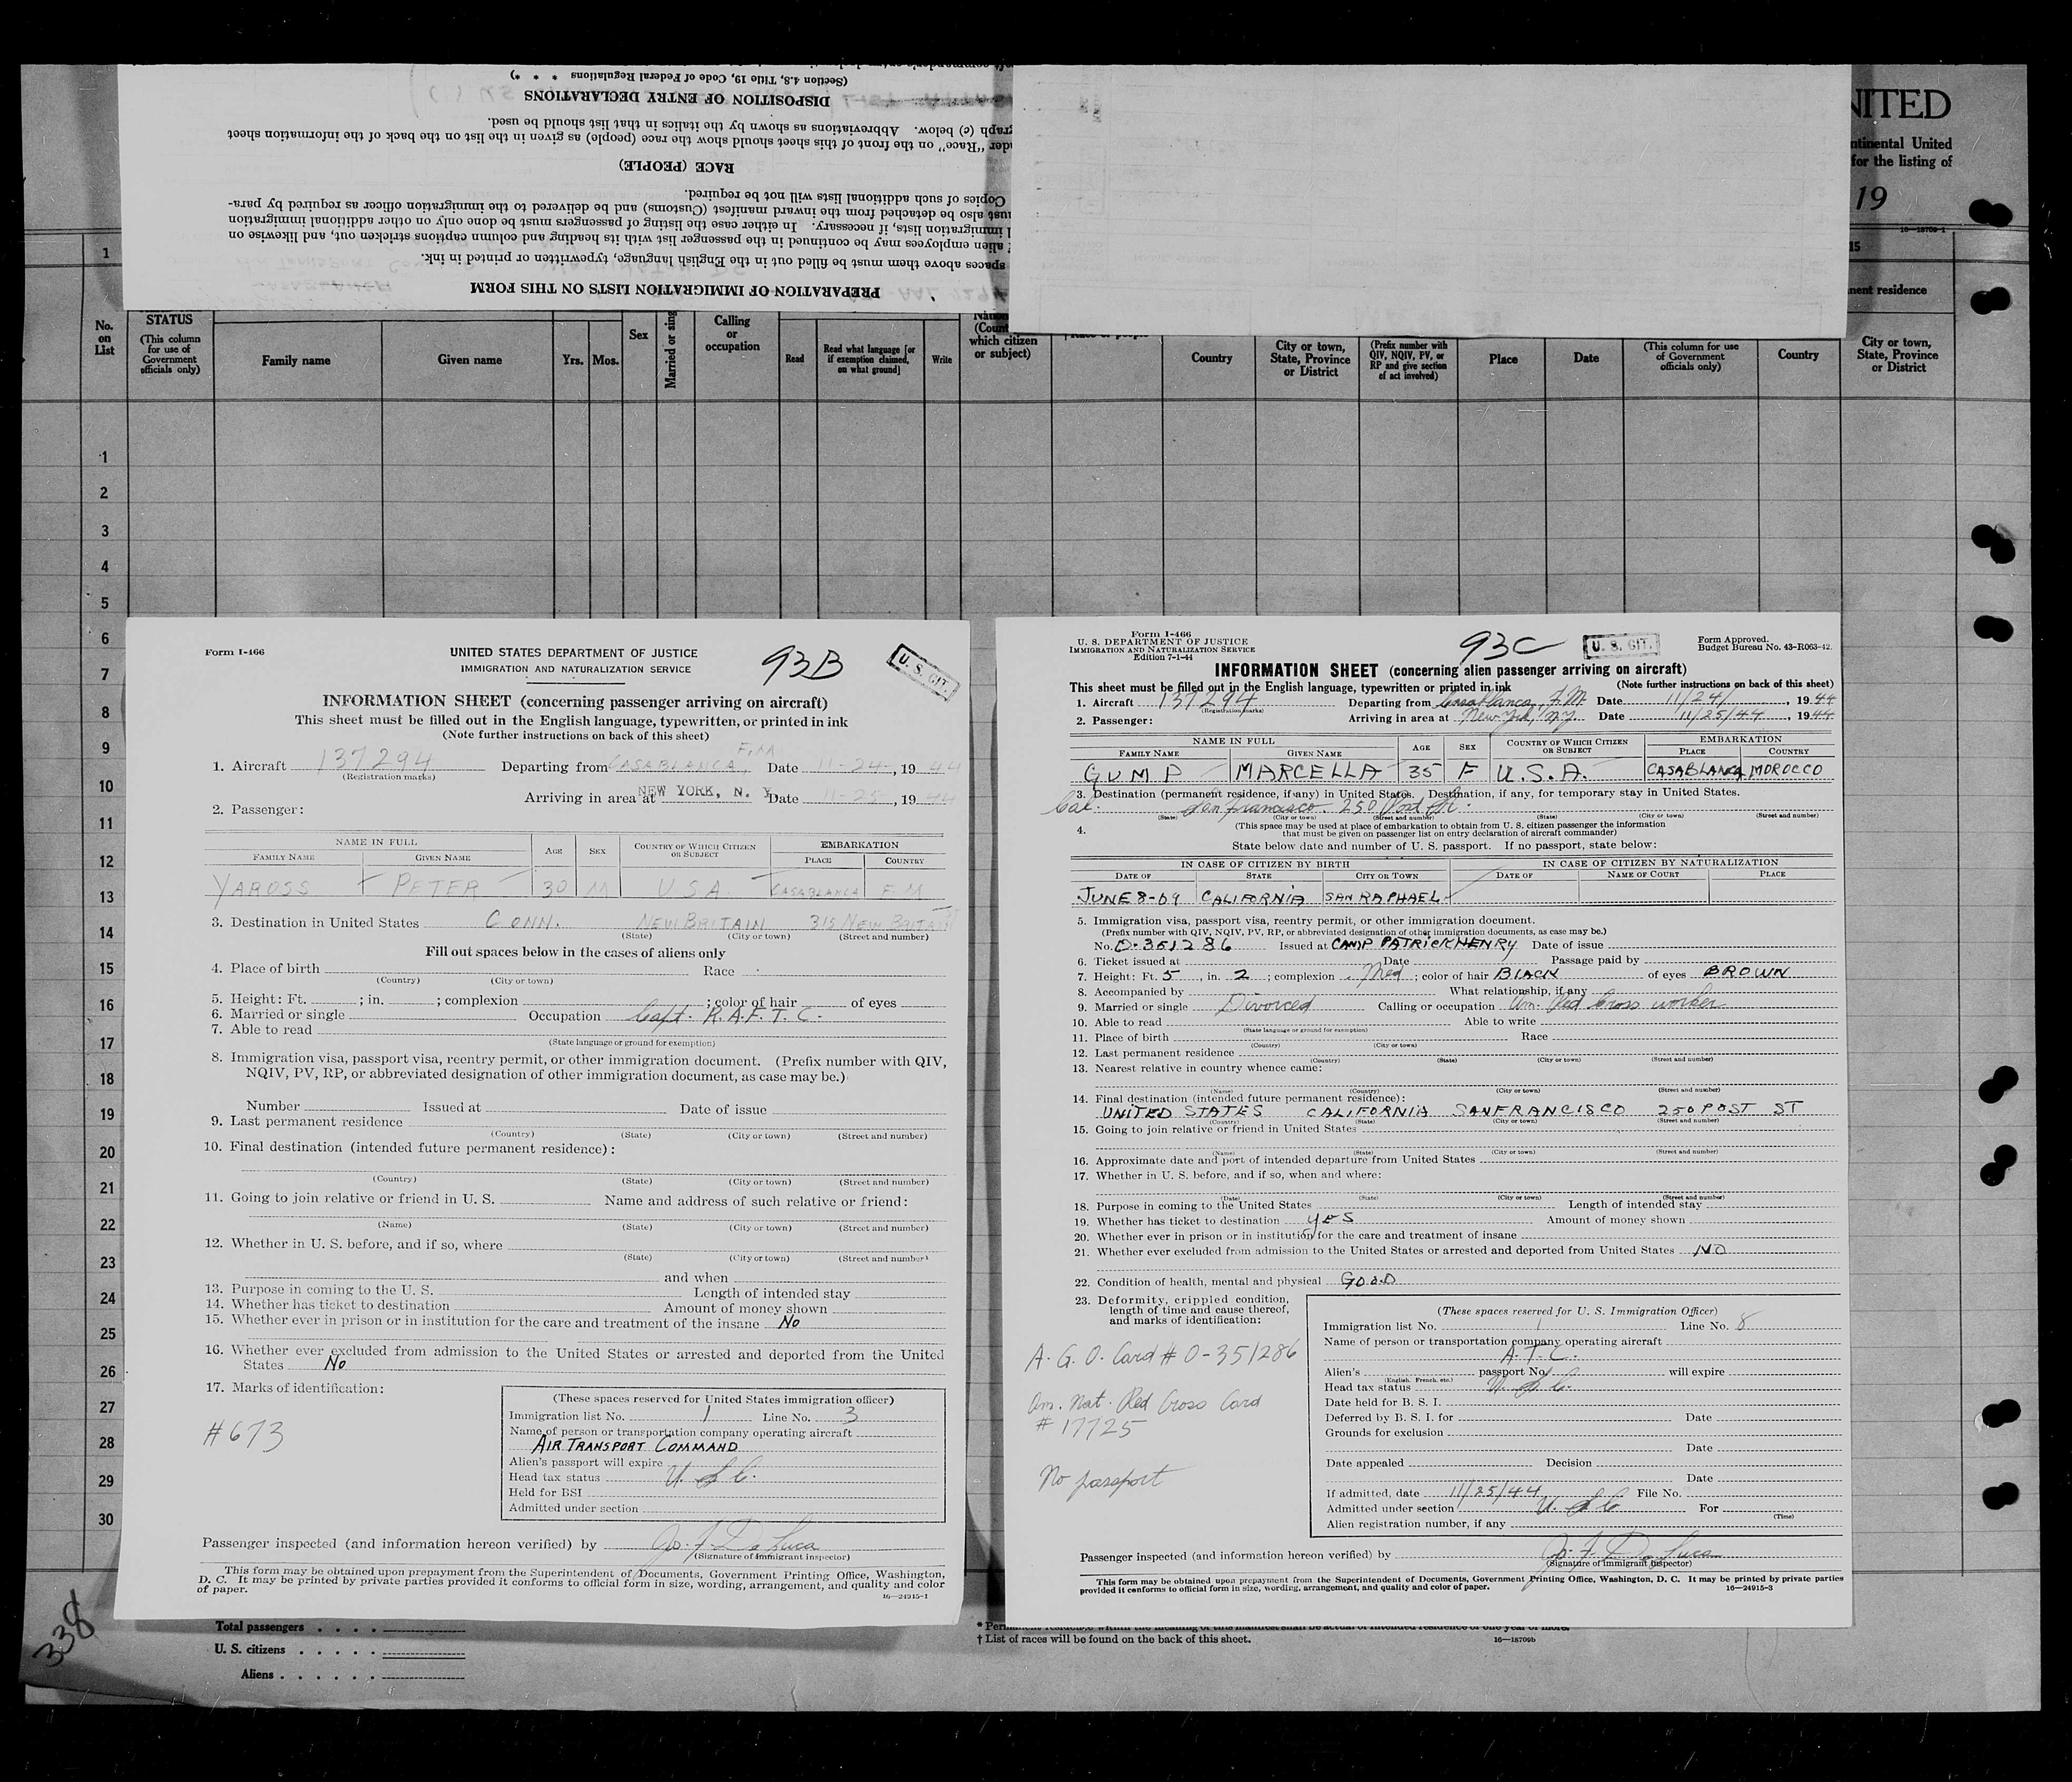 (Section 4.8, Title 19, Code of Federal Regulations * * *)
DISPOSITION OF ENTRY DECLARATIONS
graph (c) below. Abbreviations as shown by the italics in that list should be used.
der "Race" on the front of this sheet should show the race (people) as given in the list on the back of the information sheet
RACE (PEOPLE)
Copies of such additional lists will not be required.
must also be detached from the inward manifest (Customs) and be delivered to the immigration officer as required by para-
immigration lists, if necessary. In either case the listing of passengers must be done only on other additional immigration
alien employees may be continued in the passenger list with its heading and column captions stricken out, and likewise on
spaces above them must be filled out in the English language, typewritten or printed in ink.
PREPARATION OF IMMIGRATION LISTS ON THIS FORM
NITED
ntinental United
for the listing of
19
16—18709-1
1
15
nent residence
No. on List
STATUS
(This column for use of Government officials only)
Family name
Given name
Yrs.
Mos.
Sex
Married or sing
Calling or occupation
Read
Read what language [or if exemption claimed, on what ground]
Write
(Count
which citizen or subject)
Country
City or town, State, Province or District
(Prefix number with QIV, NQIV, PV, or RP and give section of act involved)
Place
Date
(This column for use of Government officials only)
Country
City or town, State, Province or District
1
2
3
4
5
6
7
8
9
10
11
12
13
14
15
16
17
18
19
20
21
22
23
24
25
26
27
28
29
30
Form I-466
UNITED STATES DEPARTMENT OF JUSTICE
IMMIGRATION AND NATURALIZATION SERVICE
93B
U. S. CIT.
INFORMATION SHEET (concerning passenger arriving on aircraft)
This sheet must be filled out in the English language, typewritten, or printed in ink
(Note further instructions on back of this sheet)
1. Aircraft 137294 Departing from CASABLANCA, F.M Date 11-24-, 1944
(Registration marks)
Arriving in area at NEW YORK, N. Y. Date 11-25-, 1944
2. Passenger:
NAME IN FULL AGE SEX COUNTRY OF WHICH CITIZEN OR SUBJECT EMBARKATION
FAMILY NAME GIVEN NAME PLACE COUNTRY
YAROSS PETER 30 M U.S.A. CASABLANCA F.M
3. Destination in United States CONN. NEW BRITAIN 315 NEW BRITAIN
(State) (City or town) (Street and number)
Fill out spaces below in the cases of aliens only
4. Place of birth Race
(Country) (City or town)
5. Height: Ft. ; in. ; complexion ; color of hair of eyes
6. Married or single Occupation Capt. R.A.F.T.C.
7. Able to read
(State language or ground for exemption)
8. Immigration visa, passport visa, reentry permit, or other immigration document. (Prefix number with QIV,
NQIV, PV, RP, or abbreviated designation of other immigration document, as case may be.)
Number Issued at Date of issue
9. Last permanent residence
(Country) (State) (City or town) (Street and number)
10. Final destination (intended future permanent residence):
(Country) (State) (City or town) (Street and number)
11. Going to join relative or friend in U. S. Name and address of such relative or friend:
(Name) (State) (City or town) (Street and number)
12. Whether in U. S. before, and if so, where
(State) (City or town) (Street and number)
and when
13. Purpose in coming to the U. S. Length of intended stay
14. Whether has ticket to destination Amount of money shown
15. Whether ever in prison or in institution for the care and treatment of the insane No
16. Whether ever excluded from admission to the United States or arrested and deported from the United
States No
17. Marks of identification:
#673
(These spaces reserved for United States immigration officer)
Immigration list No. 1 Line No. 3
Name of person or transportation company operating aircraft
AIR TRANSPORT COMMAND
Alien's passport will expire
Head tax status U. S. C.
Held for BSI
Admitted under section
Passenger inspected (and information hereon verified) by Jo. F. De Luca
(Signature of immigrant inspector)
This form may be obtained upon prepayment from the Superintendent of Documents, Government Printing Office, Washington,
D. C. It may be printed by private parties provided it conforms to official form in size, wording, arrangement, and quality and color
of paper.
16—24915-1
Form I-466
U. S. DEPARTMENT OF JUSTICE
IMMIGRATION AND NATURALIZATION SERVICE
Edition 7-1-44
93C
U. S. CIT.
Form Approved.
Budget Bureau No. 43-R063-42.
INFORMATION SHEET (concerning alien passenger arriving on aircraft)
This sheet must be filled out in the English language, typewritten or printed in ink (Note further instructions on back of this sheet)
1. Aircraft 137294 Departing from Casablanca, F.M. Date 11/24/, 1944
(Registration marks)
2. Passenger: Arriving in area at New York, N.Y. Date 11/25/44, 1944
NAME IN FULL AGE SEX COUNTRY OF WHICH CITIZEN OR SUBJECT EMBARKATION
FAMILY NAME GIVEN NAME PLACE COUNTRY
GUMP MARCELLA 35 F U.S.A. CASABLANCA MOROCCO
3. Destination (permanent residence, if any) in United States. Destination, if any, for temporary stay in United States.
Cal. San Francisco. 250 Post St.
(State) (City or town) (Street and number) (State) (City or town) (Street and number)
4. (This space may be used at place of embarkation to obtain from U. S. citizen passenger the information
that must be given on passenger list on entry declaration of aircraft commander)
State below date and number of U. S. passport. If no passport, state below:
IN CASE OF CITIZEN BY BIRTH IN CASE OF CITIZEN BY NATURALIZATION
DATE OF STATE CITY OR TOWN DATE OF NAME OF COURT PLACE
JUNE 8-09 CALIFORNIA SAN RAPHAEL
5. Immigration visa, passport visa, reentry permit, or other immigration document.
(Prefix number with QIV, NQIV, PV, RP, or abbreviated designation of other immigration documents, as case may be.)
No. O-351286 Issued at CAMP PATRICK HENRY Date of issue
6. Ticket issued at Date Passage paid by
7. Height: Ft. 5, in. 2; complexion Med; color of hair BLACK of eyes BROWN
8. Accompanied by What relationship, if any
9. Married or single Divorced Calling or occupation Am. Red Cross worker
10. Able to read Able to write
(State language or ground for exemption)
11. Place of birth Race
(Country) (City or town)
12. Last permanent residence
(Country) (State) (City or town) (Street and number)
13. Nearest relative in country whence came:
(Name) (Country) (City or town) (Street and number)
14. Final destination (intended future permanent residence):
UNITED STATES CALIFORNIA SANFRANCISCO 250 POST ST
(Country) (State) (City or town) (Street and number)
15. Going to join relative or friend in United States
(Name) (State) (City or town) (Street and number)
16. Approximate date and port of intended departure from United States
17. Whether in U. S. before, and if so, when and where:
(Date) (State) (City or town) (Street and number)
18. Purpose in coming to the United States Length of intended stay
19. Whether has ticket to destination YES Amount of money shown
20. Whether ever in prison or in institution for the care and treatment of insane
21. Whether ever excluded from admission to the United States or arrested and deported from United States NO
22. Condition of health, mental and physical GOOD
23. Deformity, crippled condition,
length of time and cause thereof,
and marks of identification:
A. G. O. Card # O-351286
Am. Nat. Red Cross Card
# 17725
No passport
(These spaces reserved for U. S. Immigration Officer)
Immigration list No. 1 Line No. 8
Name of person or transportation company operating aircraft
A. T. C.
Alien's passport No. will expire
(English, French, etc.)
Head tax status U. S. C.
Date held for B. S. I.
Deferred by B. S. I. for Date
Grounds for exclusion
Date
Date appealed Decision
Date
If admitted, date 11/25/44 File No.
Admitted under section U. S. C For
(Time)
Alien registration number, if any
Passenger inspected (and information hereon verified) by Jo. F. De Luca
(Signature of Immigrant Inspector)
This form may be obtained upon prepayment from the Superintendent of Documents, Government Printing Office, Washington, D. C. It may be printed by private parties
provided it conforms to official form in size, wording, arrangement, and quality and color of paper. 16—24915-3
338
Total passengers
U. S. citizens
Aliens
† List of races will be found on the back of this sheet.
16—18709b